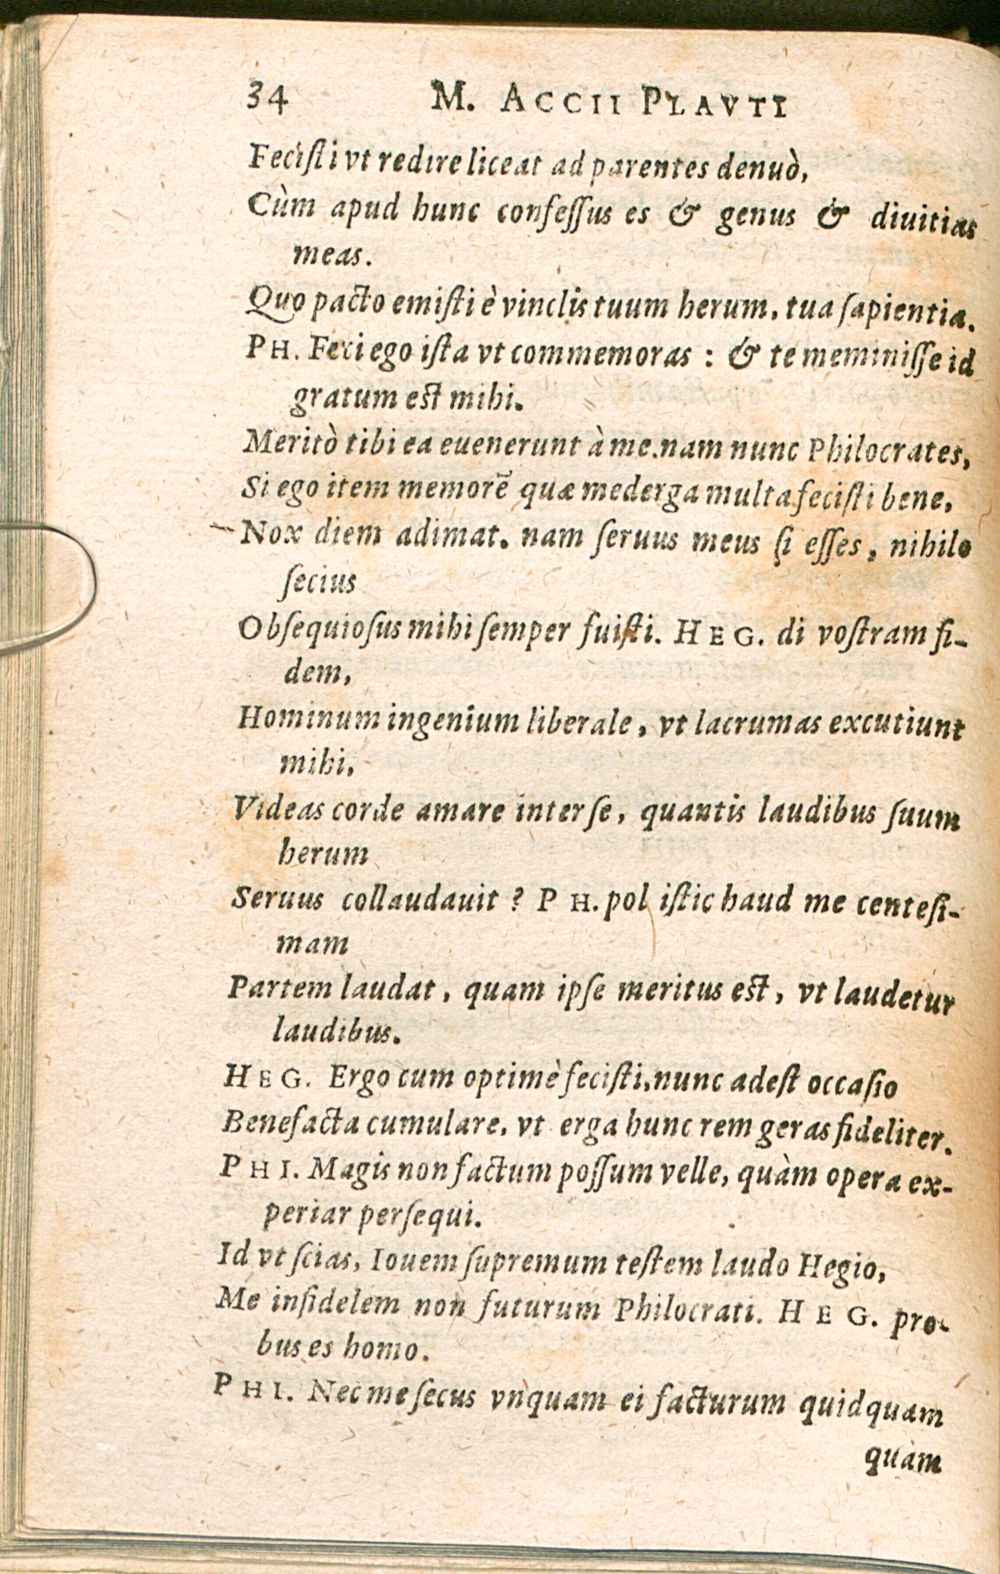 34 M. ACCII PLAVTI
Feciſti vt redire liceat ad parentes denuò,
Cùm apud hunc confeſſus es & genus & diuitias
meas.
Quo pacto emiſti è vinclis tuum herum, tua ſapientia.
PH. Feci ego iſta vt commemoras : & te meminiſſe id
gratum eſt mihi.
Meritò tibi ea euenerunt à me. nam nunc Philocrates,
Si ego item memorē quæ med erga multa feciſti bene,
Nox diem adimat. nam ſeruus meus ſi eſſes, nihilo
ſecius
Obſequioſus mihi ſemper fuiſti. HEG. di voſtram fi-
dem,
Hominum ingenium liberale, vt lacrumas excutiunt
mihi,
Videas corde amare inter ſe, quantis laudibus ſuum
herum
Seruus collaudauit ? PH. pol iſtic haud me centeſi-
mam
Partem laudat, quam ipſe meritus eſt, vt laudetur
laudibus.
HEG. Ergo cum optimè feciſti, nunc adeſt occaſio
Benefacta cumulare, vt erga hunc rem geras fideliter.
PHI. Magis non factum poſſum velle, quàm opera ex-
periar perſequi.
Id vt ſcias, Iouem ſupremum teſtem laudo Hegio,
Me infidelem non futurum Philocrati. HEG. pro-
bus es homo.
PHI. Nec me ſecus vnquam ei facturum quidquam
quàm